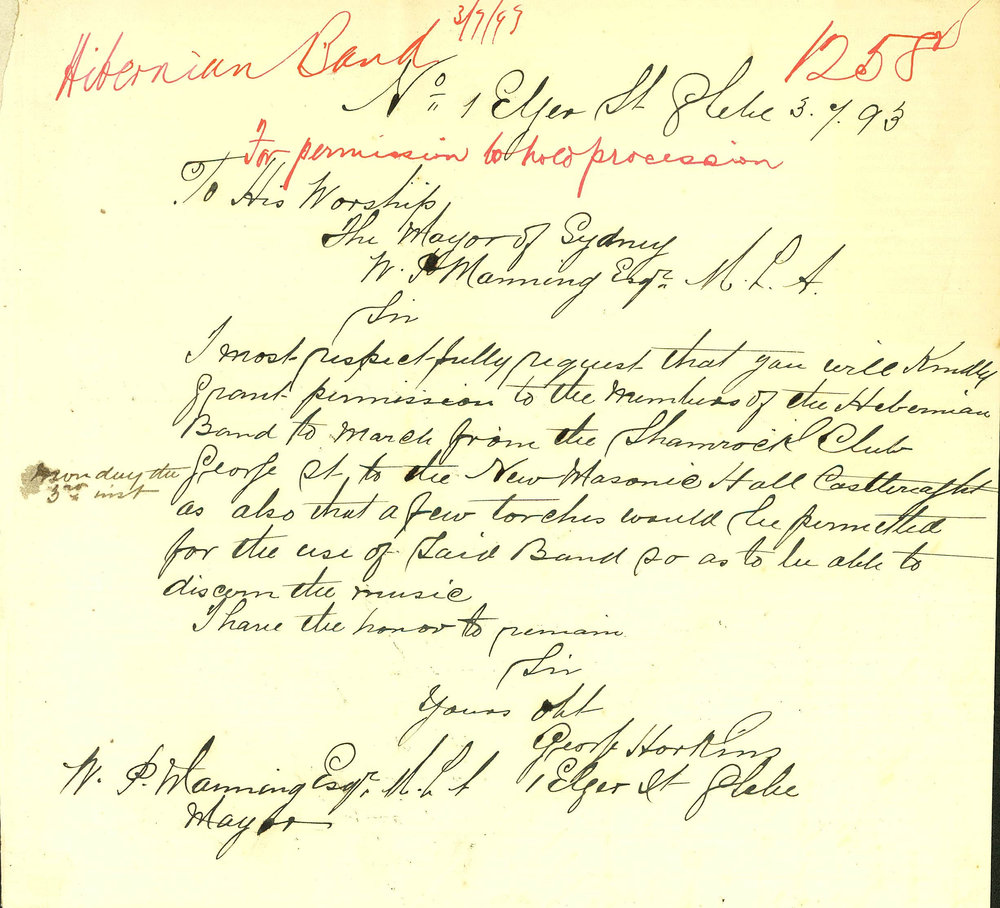 3/7/93
Hibernian Band 1258
No 1 Elger St Glebe 3.7.93
For permission to hold procession
To His Worship
The Mayor of Sydney
W. P Manning Esqr. M. L. A.
Sir
I most respectfully request that you will Kindly
grant permission to the Members of the Hibernian
Band to March from the Shamrock Club
George st, to the New Masonic Hall Castlereaght
on monday the
3rd inst
as also that a few torches would be permitted
for the use of Said Band so as to be able to
discern the music
I have the honor to remain
Sir
Yours obt
George Horkins
W. P. Manning Esqr. M. L. A 1 Elger St Glebe
Mayor